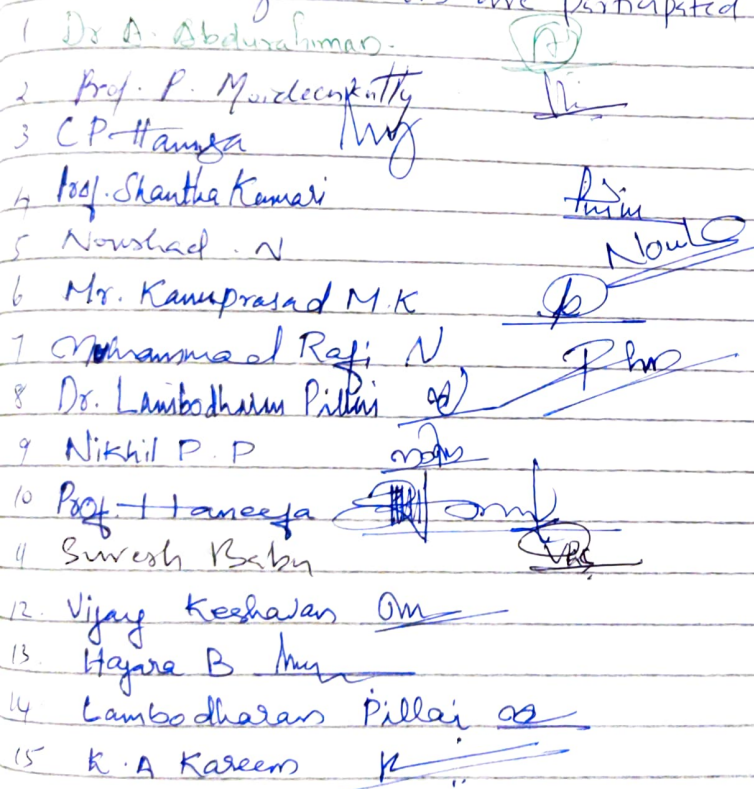 participated
1 Dr A. Abdurahiman.
2 Prof. P. Moideenkutty
3 C P Hamza
4 Prof. Shantha Kumari
5 Noushad . N Noul
6 Mr. Kanuprasad M.K
7 Mohammad Rafi N
8 Dr. Lambodharan Pillai
9 Nikhil P. P
10 Prof. Haneefa
11 Suresh Babu
12. Vijay Keshavan
13. Hajara B
14 Lambodharan Pillai
15 K. A Kareem